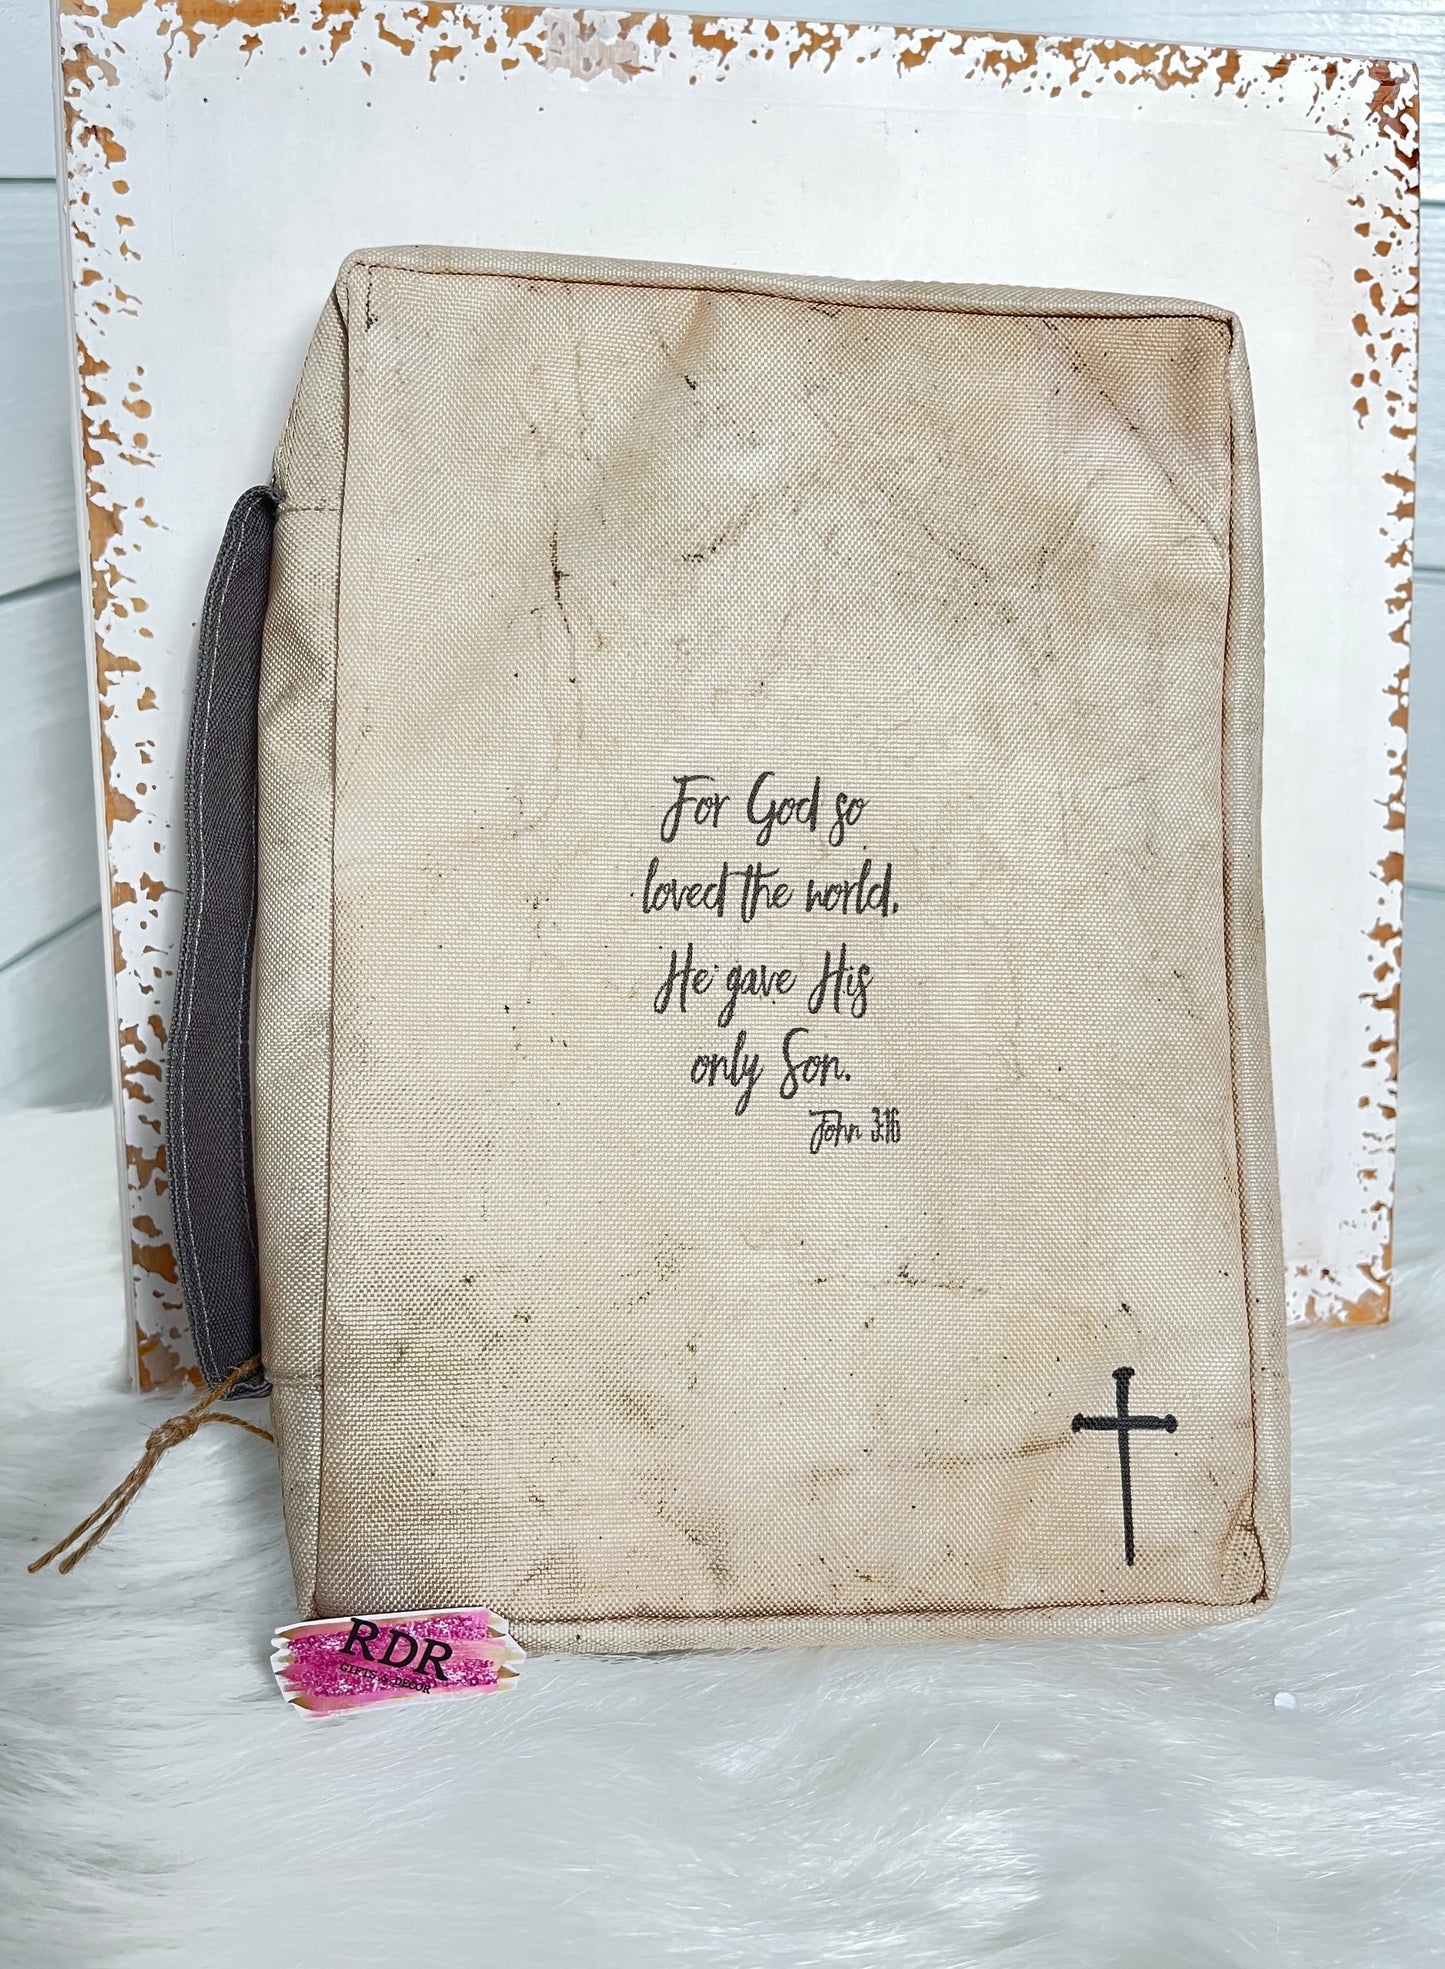 For God so
loved the world,
He gave His
only Son.
John 3:16
RDR
GIFTS & DECOR